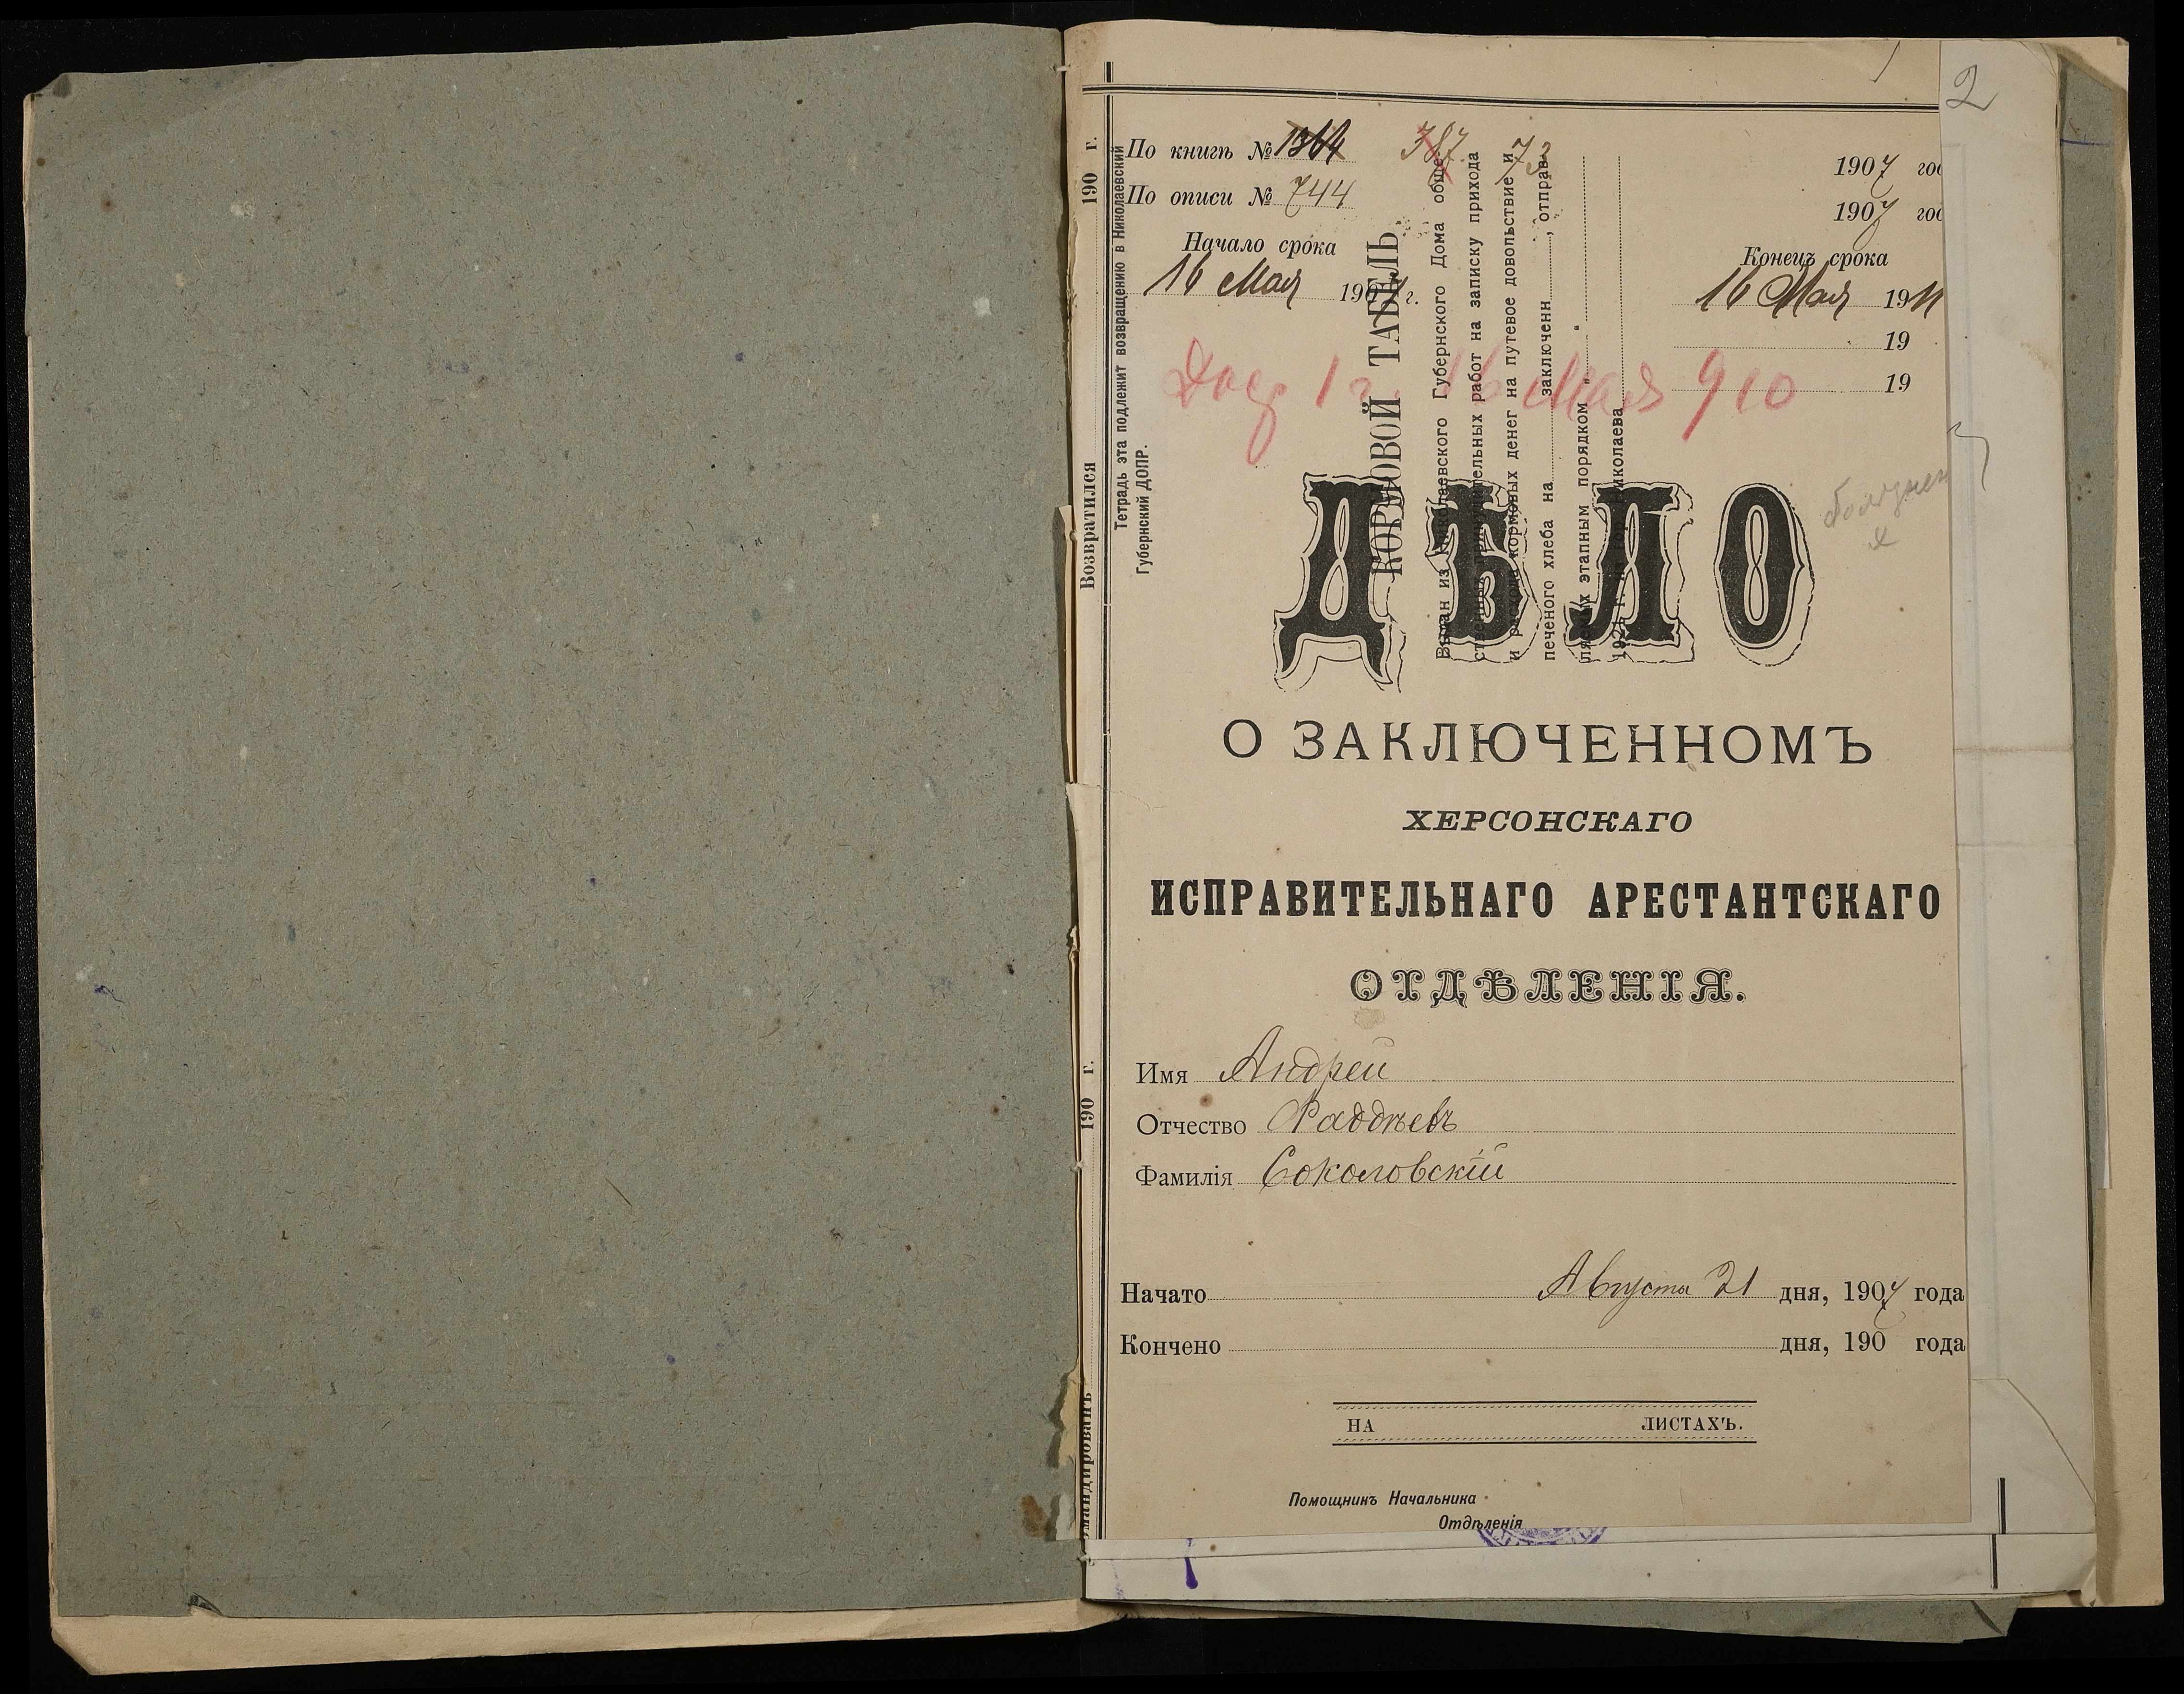 2
По книгѣ № 1364 387 73 1907 го
По описи № 744 1907 го
Начало срока Конецъ срока
16 Мая 1907 г. 16 Мая 1911
19
16 Мая 910
19
ДѢЛО
О ЗАКЛЮЧЕННОМЪ
ХЕРСОНСКАГО
ИСПРАВИТЕЛЬНАГО АРЕСТАНТСКАГО
ОТДѢЛЕНІЯ.
Имя Андрей
Отчество Фаддѣевъ
Фамилія Соколовскій
Начато Августа 21 дня, 1907 года
Кончено дня, 190 года
НА ЛИСТАХЪ.
Помощникъ Начальника
Отдѣленія
190 г.
Возвратился
190 г.
мандированъ
Тетрадь эта подлежит возвращению в Николаевский
Губернский ДОПР.
КОРМОВОЙ ТАБЕЛЬ
Выдан из Николаевского Губернского Дома обще
ственных принудительных работ на записку прихода
и расхода кормовых денег на путевое довольствие и
печеного хлеба на заключенн , отправ
ляемых этапным порядком
192 г. гор. Николаева